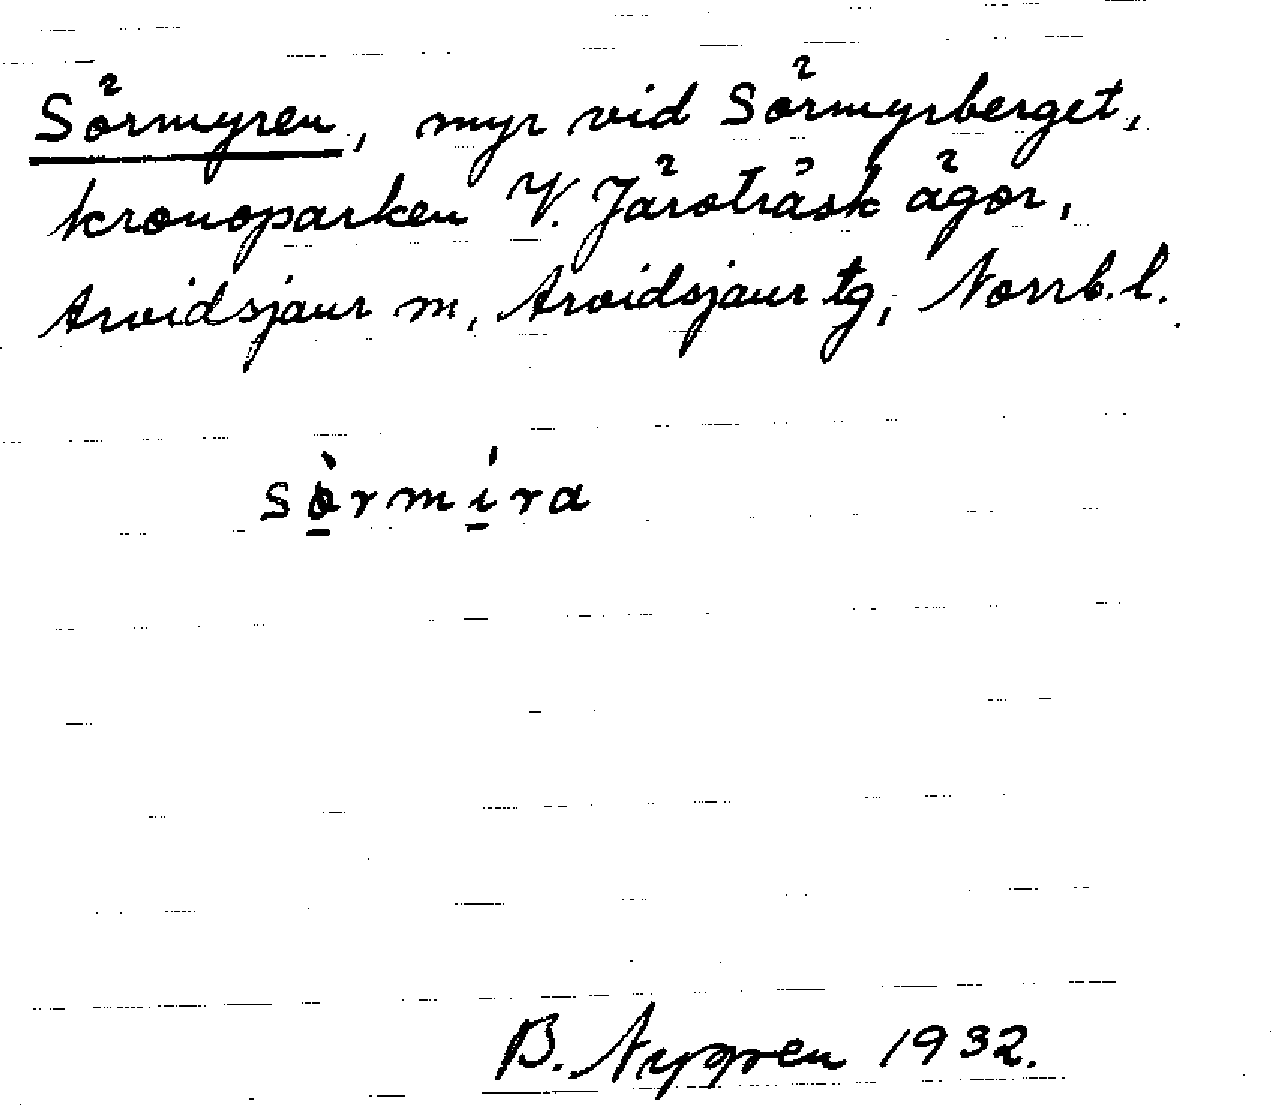 Sörmyren, myr vid Sörmyrberget,
kronoparken V. Järsträsk ägor,
Arvidsjaur sn, Arvidsjaur tg, Norrb. l.
sö̀rmíra
B. Nygren 1932.